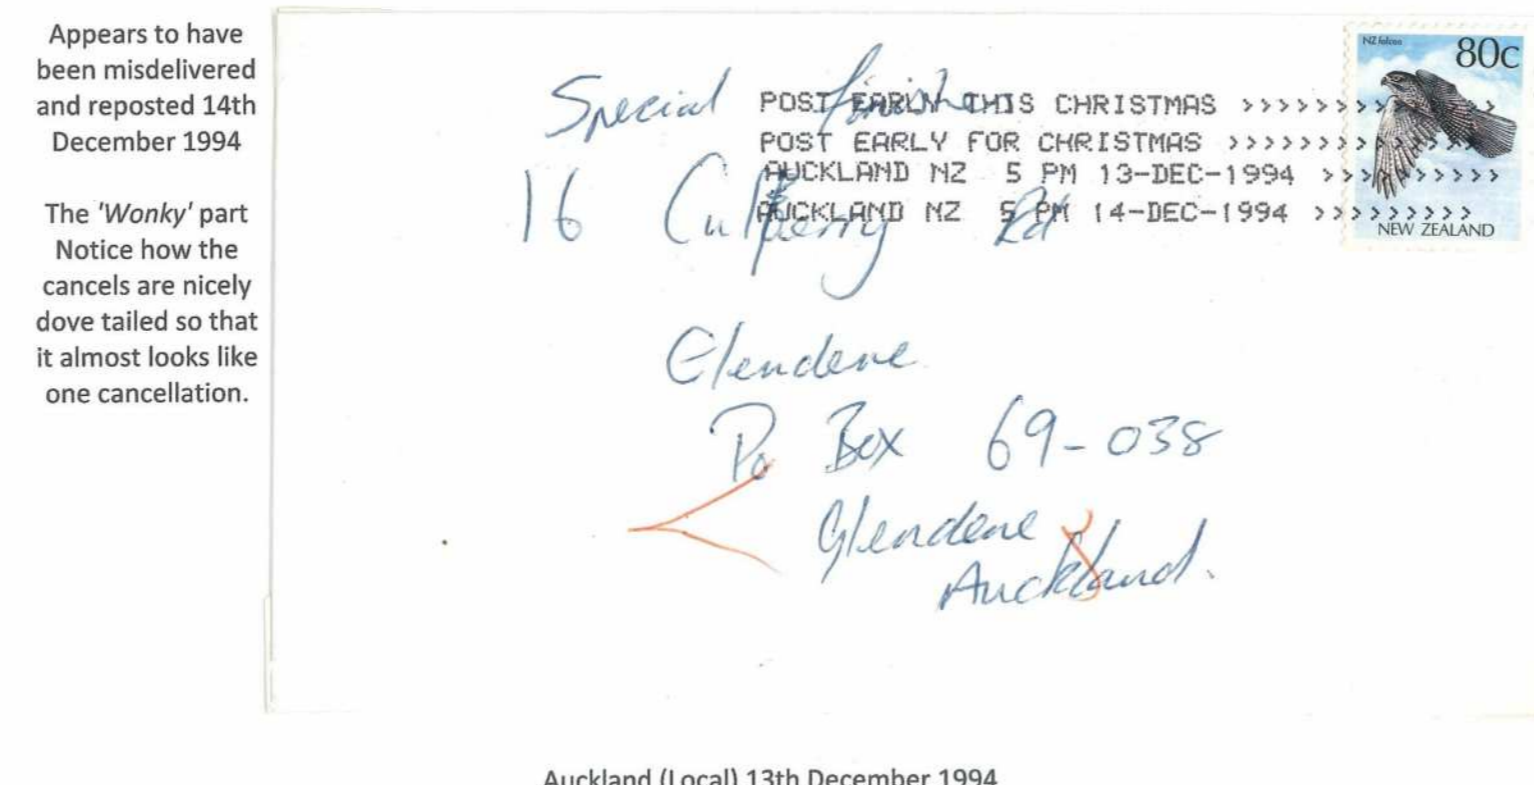 Appears to have
been misdelivered
and reposted 14th
December 1994
The 'Wonky' part
Notice how the
cancels are nicely
dove tailed so that
it almost looks like
one cancellation.
NZ falcon 80c
NEW ZEALAND
POST EARLY THIS CHRISTMAS >>>>>>>>>>>>>
POST EARLY FOR CHRISTMAS >>>>>>>>>>>>>
AUCKLAND NZ 5 PM 13-DEC-1994 >>>>>>>>>
AUCKLAND NZ 5 PM 14-DEC-1994 >>>>>>>>>
Special finishers
16 Culperry Rd
Glendene
Po Box 69-038
Glendene
Auckland.
Auckland (Local) 13th December 1994